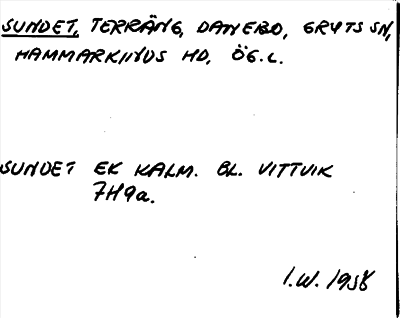 SUNDET, TERRÄNG, DANEBO, GRYTS SN,
HAMMARKINDS HD, ÖG. L.
SUNDET EK KALM. BL. VITTVIK
7H9a.
I.W. 1958